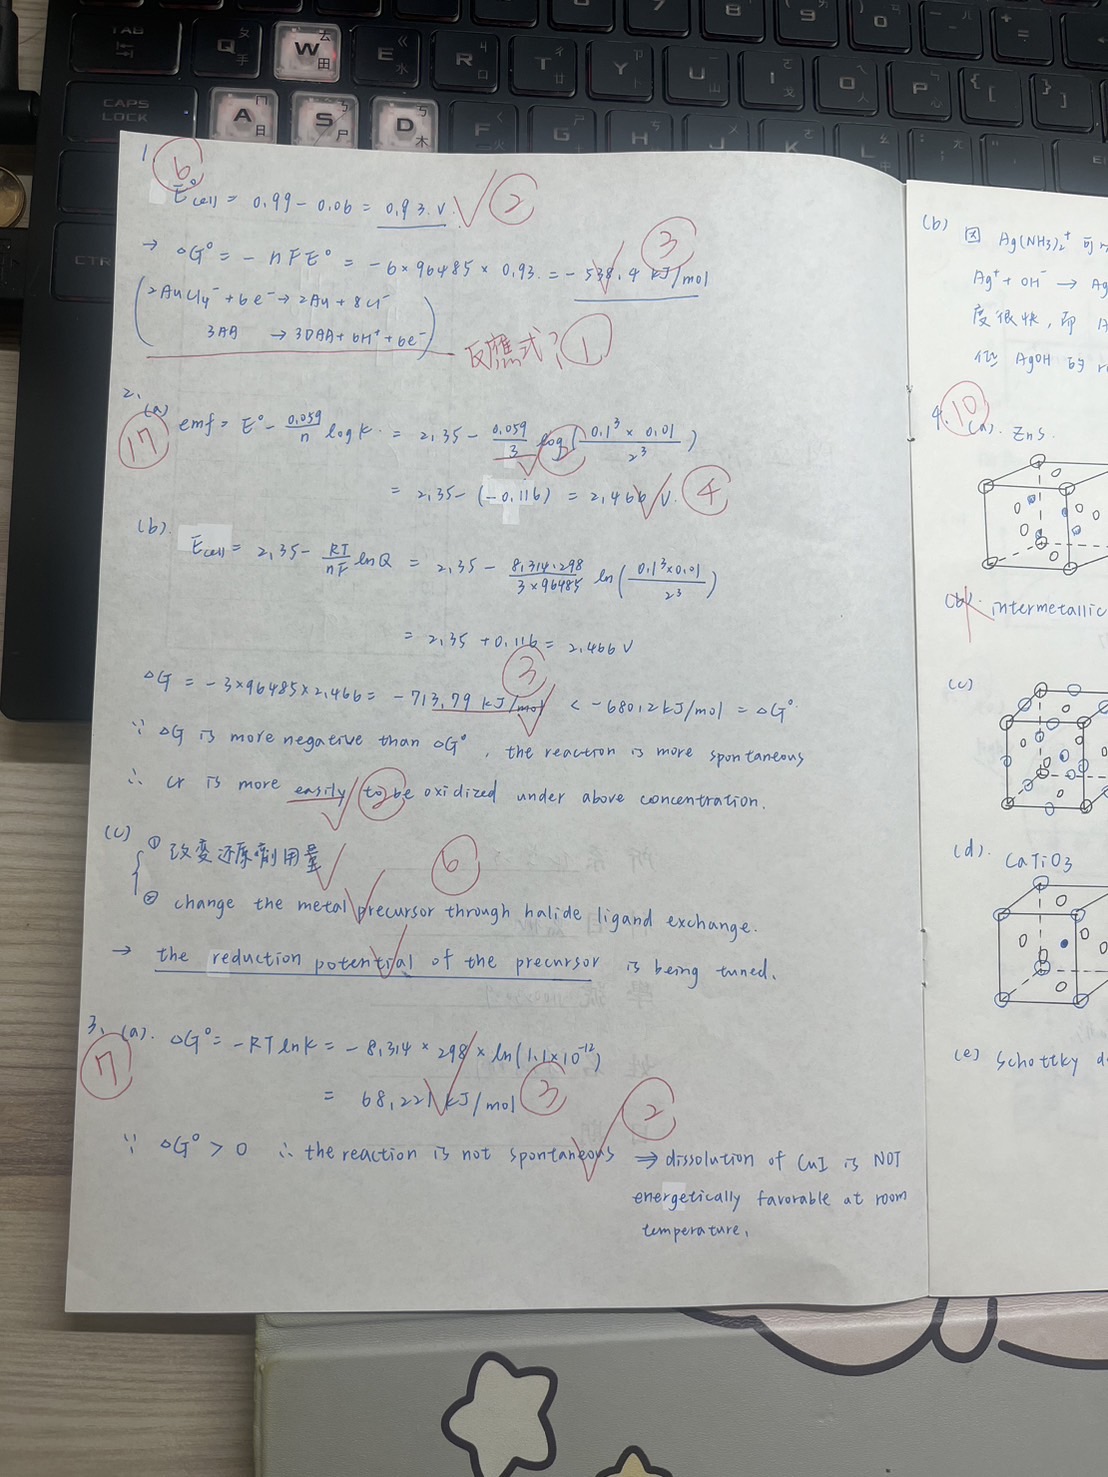 TAB
Q
W
E
R
T
Y
U
I
O
P
CAPS
LOCK
A
S
D
F
G
H
J
K
L
CTR
1
6
E°cell = 0.99 - 0.06 = 0.93 V. 2
→ ΔG° = - nFE° = -6×96485×0.93 = -538.4 kJ/mol 3
2AuCl4⁻ + 6e⁻ → 2Au + 8Cl⁻
3AA → 3DAA + 6H⁺ + 6e⁻
反應式? 1
2.
17
(a) emf = E° - 0.059/n log K = 2.35 - 0.059/3 log(0.1³ × 0.01 / 2³)
= 2.35 - (-0.116) = 2.466 V. 4
(b).
Ecell = 2.35 - RT/nF ln Q = 2.35 - 8.314.298/3×96485 ln(0.1³×0.01/2³)
= 2.35 + 0.116 = 2.466 V
3
ΔG = -3×96485×2.466 = -713.79 kJ/mol < -680.2 kJ/mol = ΔG°
∵ ΔG is more negative than ΔG°, the reaction is more spontaneous
∴ Cr is more easily to be oxidized under above concentration.
(c)
① 改變还原劑用量 6
② change the metal precursor through halide ligand exchange.
→ the reduction potential of the precursor is being tuned.
3. (a). ΔG° = -RT ln K = -8.314 × 298 × ln(1.1×10⁻¹²)
7
= 68.221 kJ/mol 3
2
∵ ΔG° > 0 ∴ the reaction is not spontaneous ⇒ dissolution of CuI is NOT
energetically favorable at room
temperature.
(b) 因 Ag(NH3)2⁺ 可
Ag⁺ + OH⁻ → Ag
度很快, 而
AgOH 的
4. 10
(a). ZnS.
(b). intermetallic
(c)
(d). CaTiO3
(e) Schottky d